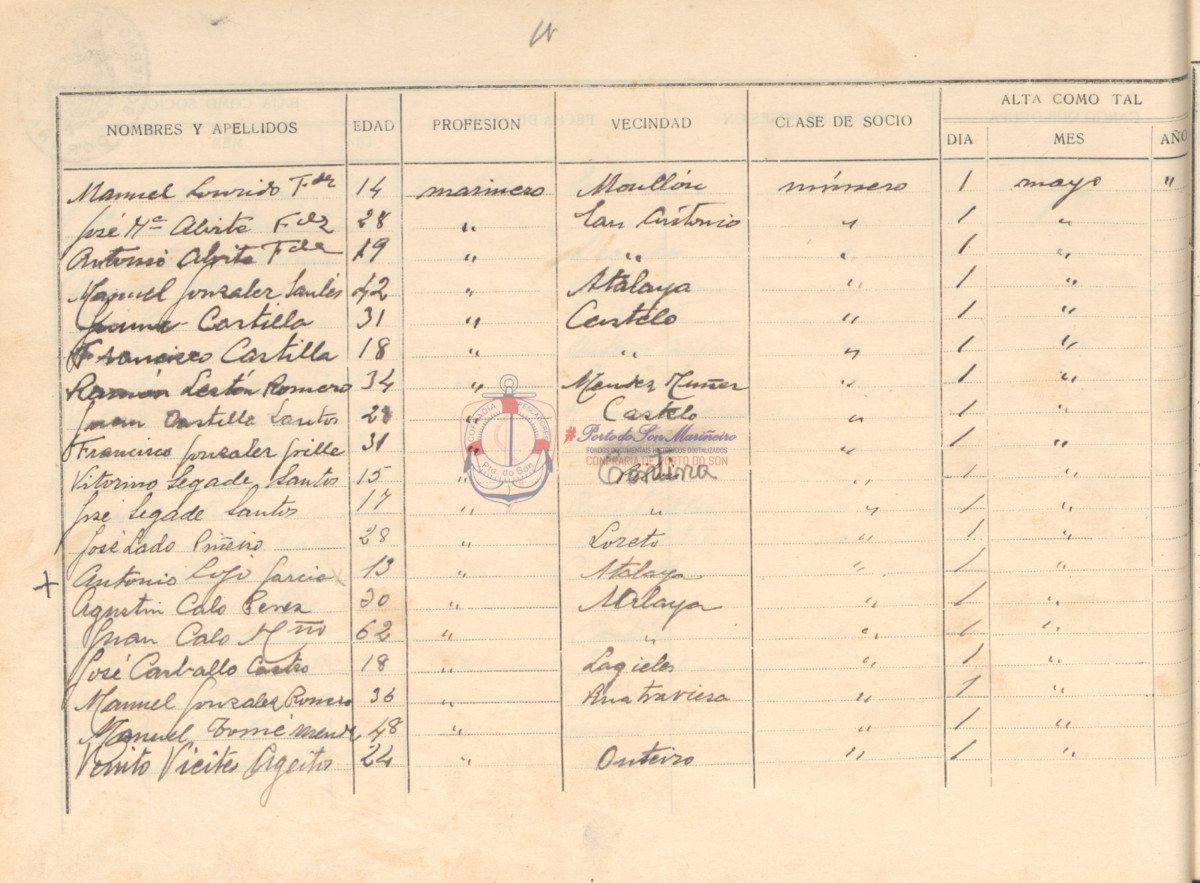 NOMBRES Y APELLIDOS EDAD PROFESION VECINDAD CLASE DE SOCIO ALTA COMO TAL
DIA MES AÑO
Manuel Lourido Fdez 14 marinero Moullón número 1 mayo "
José Mª Alvite Fdez 28 " San Antonio " 1 "
Antonio Alvite Fdez 19 " " " 1 "
Manuel Gonzalez Santos 42 " Atalaya " 1 "
Castilla 31 " Castelo " 1 "
Francisco Castilla 18 " " " 1 "
Ramón Lestón Romero 34 " Mendez Nuñez " 1 "
Juan Castilla Santos 28 " Castelo " 1 "
Francisco Gonzalez Grille 31 " " 1 "
Vitorino Segade Santos 15 " " 1 "
José Segade Santos 17 " " " 1 "
José Lado Piñeiro 28 " Loreto " 1 "
+ Antonio García x 13 " Atalaya " 1 "
Agustin Calo Perez 30 " Atalaya " 1 "
Juan Calo Mñó 62 " " " 1 "
José Carballo Castro 18 " " 1 "
Manuel Gonzalez Romero 36 " Ruatraviesa " 1 "
Manuel Tomé 48 " " 1 "
Venito Vieites Ageitos 24 " Outeiro " 1 "
COFRADIA PESCADORES
Pto. do Son
#Porto do Son Mariñeiro
FONDOS DOCUMENTAIS HISTÓRICOS DIXITALIZADOS
CONFRARÍA DE PORTO DO SON